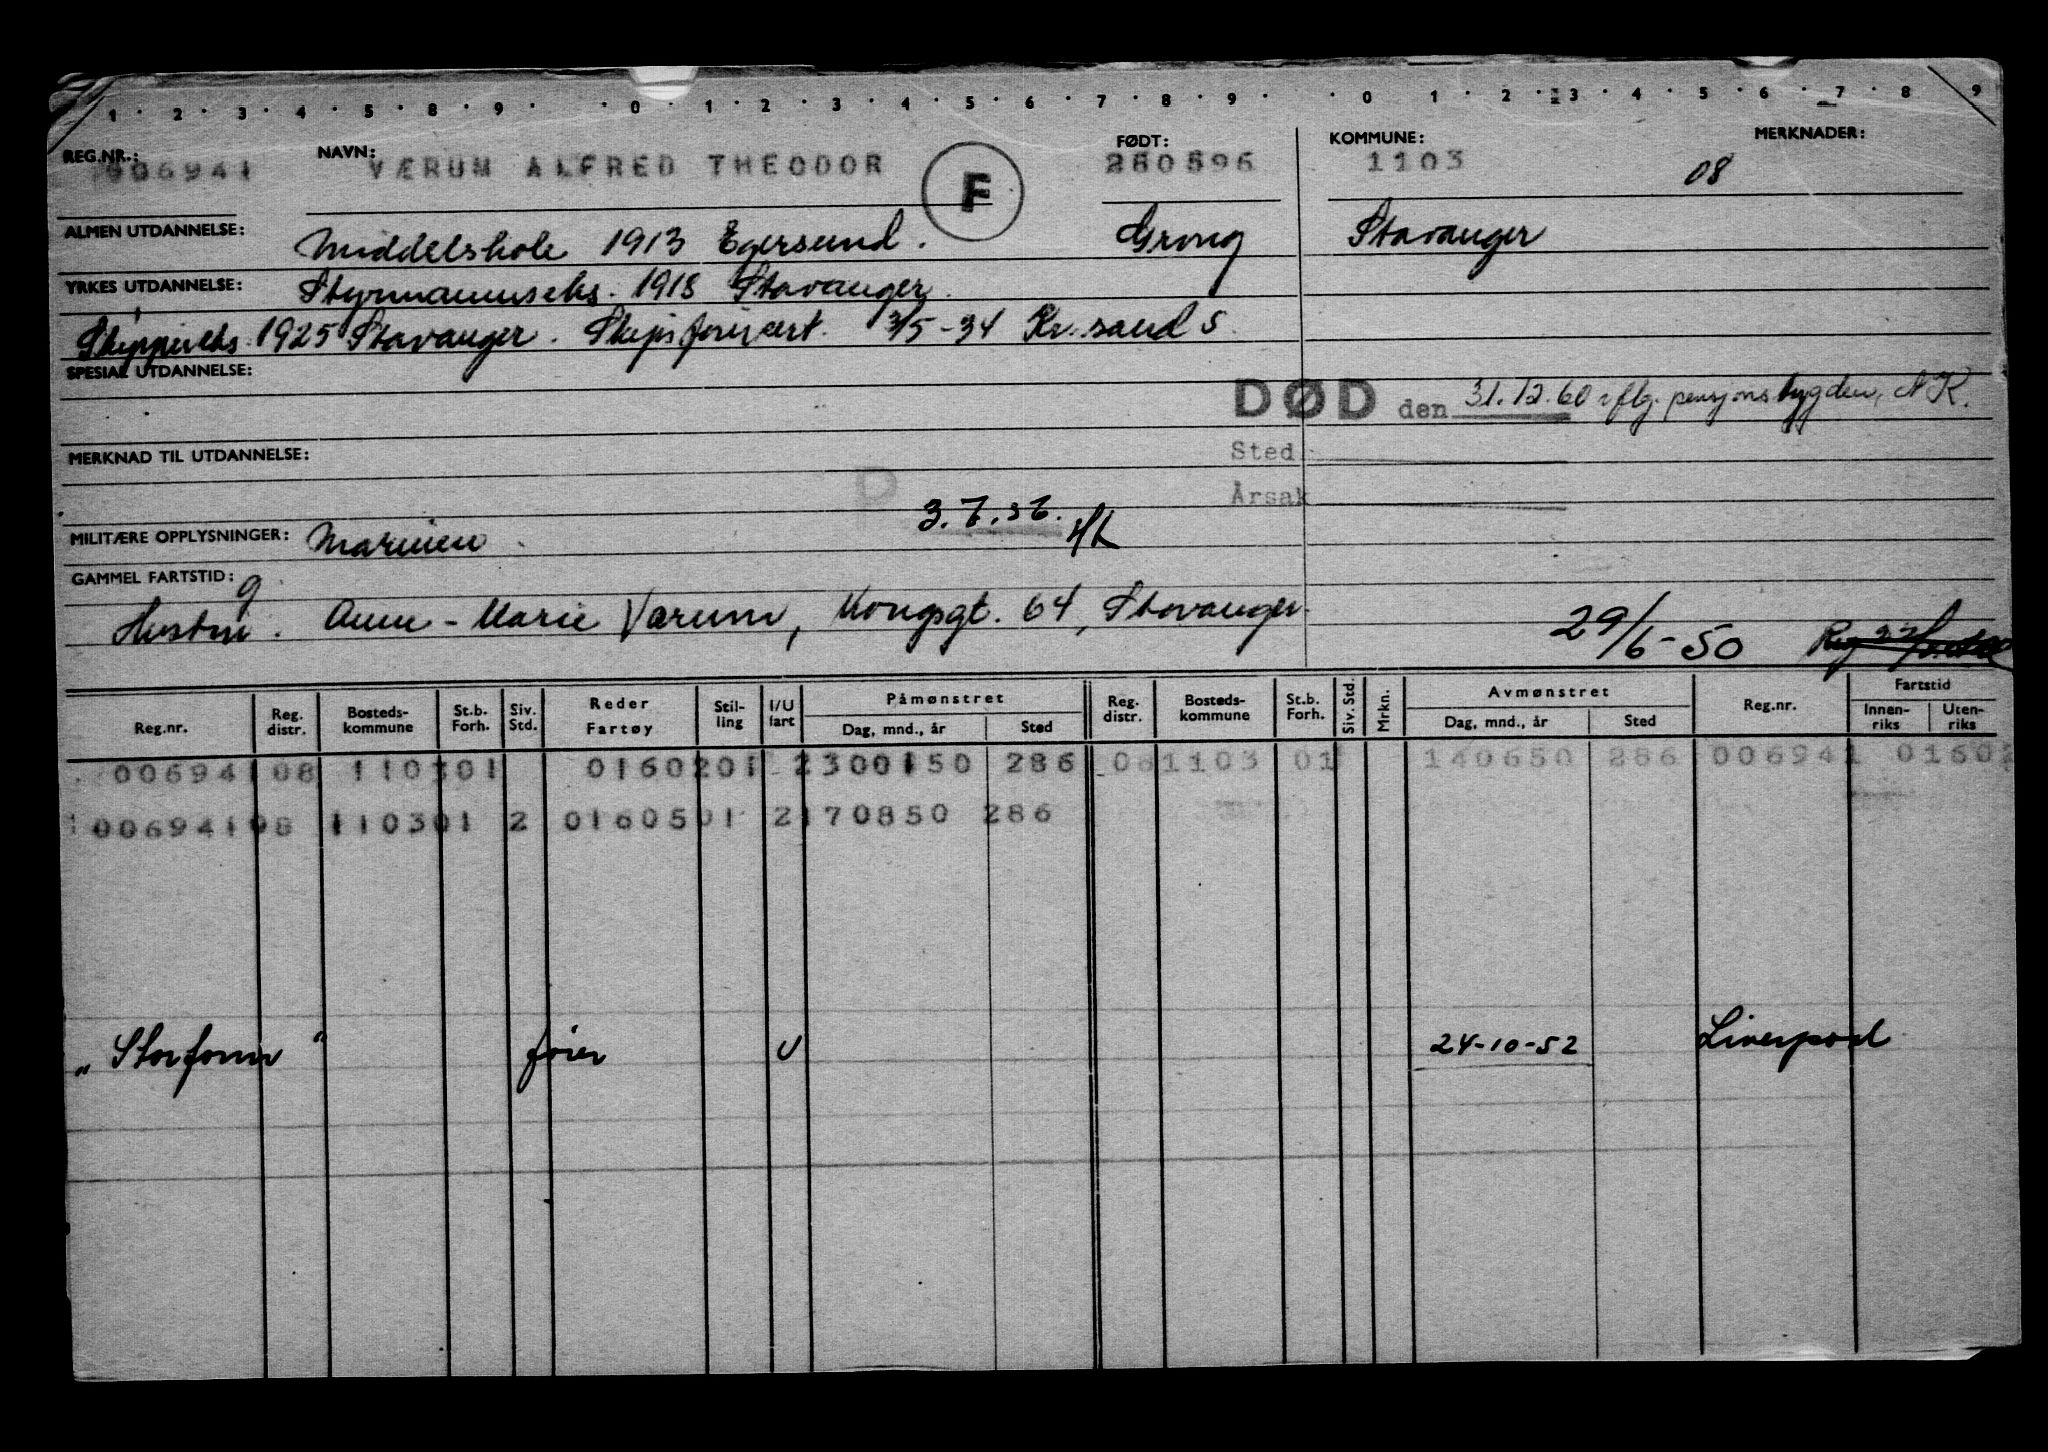 1 · 2 · 3 · 4 · 5 · 8 · 9 · · 0 · 1 · 2 · 3 · 4 · 5 · 6 · 7 · 8 · 9 · · 0 · 1 · 2 · 3 · 4 · 5 · 6 · 7 · 8 · 9
REG.NR.: NAVN: FØDT: KOMMUNE: MERKNADER:
006941 VÆRUM ALFRED THEODOR F 280896 1103 08
ALMEN UTDANNELSE: Middelskole 1913 Egersund. Grong Stavanger
YRKES UTDANNELSE: Styrmannseks. 1918 Stavanger.
Skippereks. 1925 Stavanger. Skipsførercert. 3/5-34 Kr.sand S.
SPESIAL UTDANNELSE:
DØD den 31.12.60 iflg. pensjonstrygden, AK.
MERKNAD TIL UTDANNELSE: Sted
P Årsak
MILITÆRE OPPLYSNINGER: Marinen 3.7.56. HK
GAMMEL FARTSTID: g
Hustru. Anne-Marie Værum, Kongsgt. 64, Stavanger.
29/6-50
Reg.nr. Reg. distr. Bosteds-kommune St.b. Forh. Siv. Std. Reder Fartøy Stil-ling I/U fart Påmønstret Dag, mnd., år Sted Reg. distr. Bosteds-kommune St.b. Forh. Siv. Std. Mrkn. Avmønstret Dag, mnd., år Sted Reg.nr. Fartstid Innen-riks Uten-riks
006941 08 1103 01 01602 01 2 300150 286 08 1103 01 140650 286 006941 01602
006941 08 1103 01 2 01605 01 2 170850 286
"Storfonn" fører U 24-10-52 Liverpool